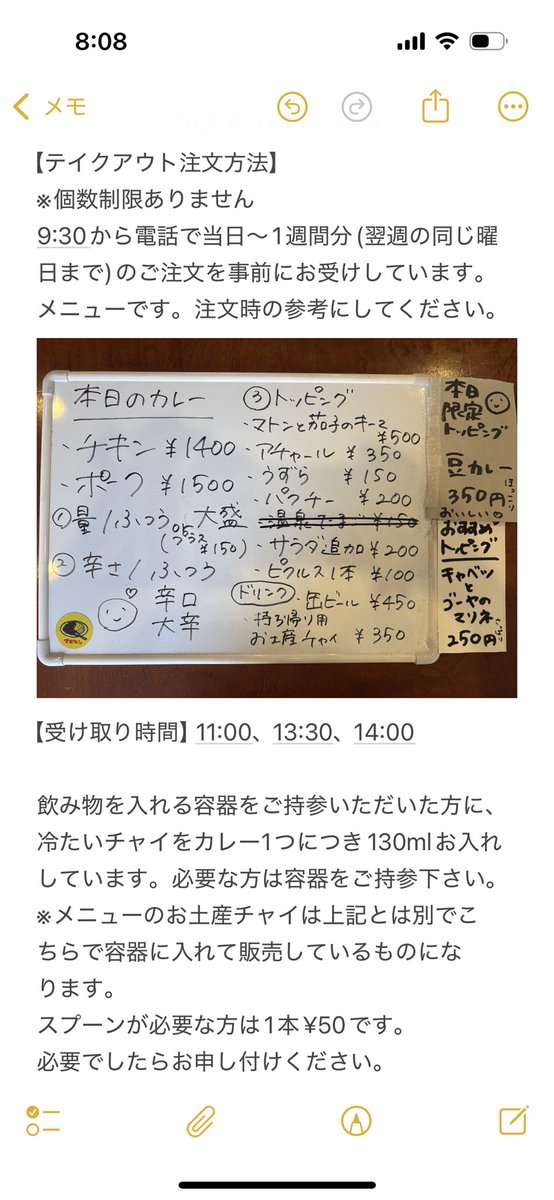 8:08
メモ
【テイクアウト注文方法】
※個数制限ありません
9:30から電話で当日〜1週間分(翌週の同じ曜
日まで)のご注文を事前にお受けしています。
メニューです。注文時の参考にしてください。
本日のカレー
・チキン ¥1400
・ポーク ¥1500
①量/ふつう or 大盛
(プラス ¥150)
②辛さ/ふつう
辛口
大辛
③トッピング
・マトンと茄子のキーマ ¥500
・アチャール ¥350
・うずら ¥150
・パクチー ¥200
・温泉たまご ¥150
・サラダ追加 ¥200
・ピクルス1本 ¥100
ドリンク ・缶ビール ¥450
・持ち帰り用
お土産チャイ ¥350
本日
限定
トッピング
豆カレー
350円
ほっこり
おいしい
おすすめ
トッピング
キャベツ
と
ゴーヤの
マリネ
250円
【受け取り時間】11:00、13:30、14:00
飲み物を入れる容器をご持参いただいた方に、
冷たいチャイをカレー1つにつき130mlお入れ
しています。必要な方は容器をご持参下さい。
※メニューのお土産チャイは上記とは別でこ
ちらで容器に入れて販売しているものにな
ります。
スプーンが必要な方は1本¥50です。
必要でしたらお申し付けください。